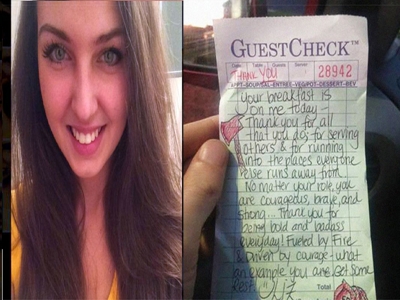 GUESTCHECK™
Date Table Guests Server
THANK YOU 28942
APPT-SOUP/SAL-ENTREE-VEG/POT-DESSERT-BEV
Your breakfast is
on me today -
Thank you for all
that you do; for serving
others & for running
into the places everyone
else runs away from.
No matter your role, you
are courageous, brave, and
strong... Thank you for
being bold and badass
everyday! Fueled by Fire
& Driven by courage - what
an example you are. Get some
rest!!
Total